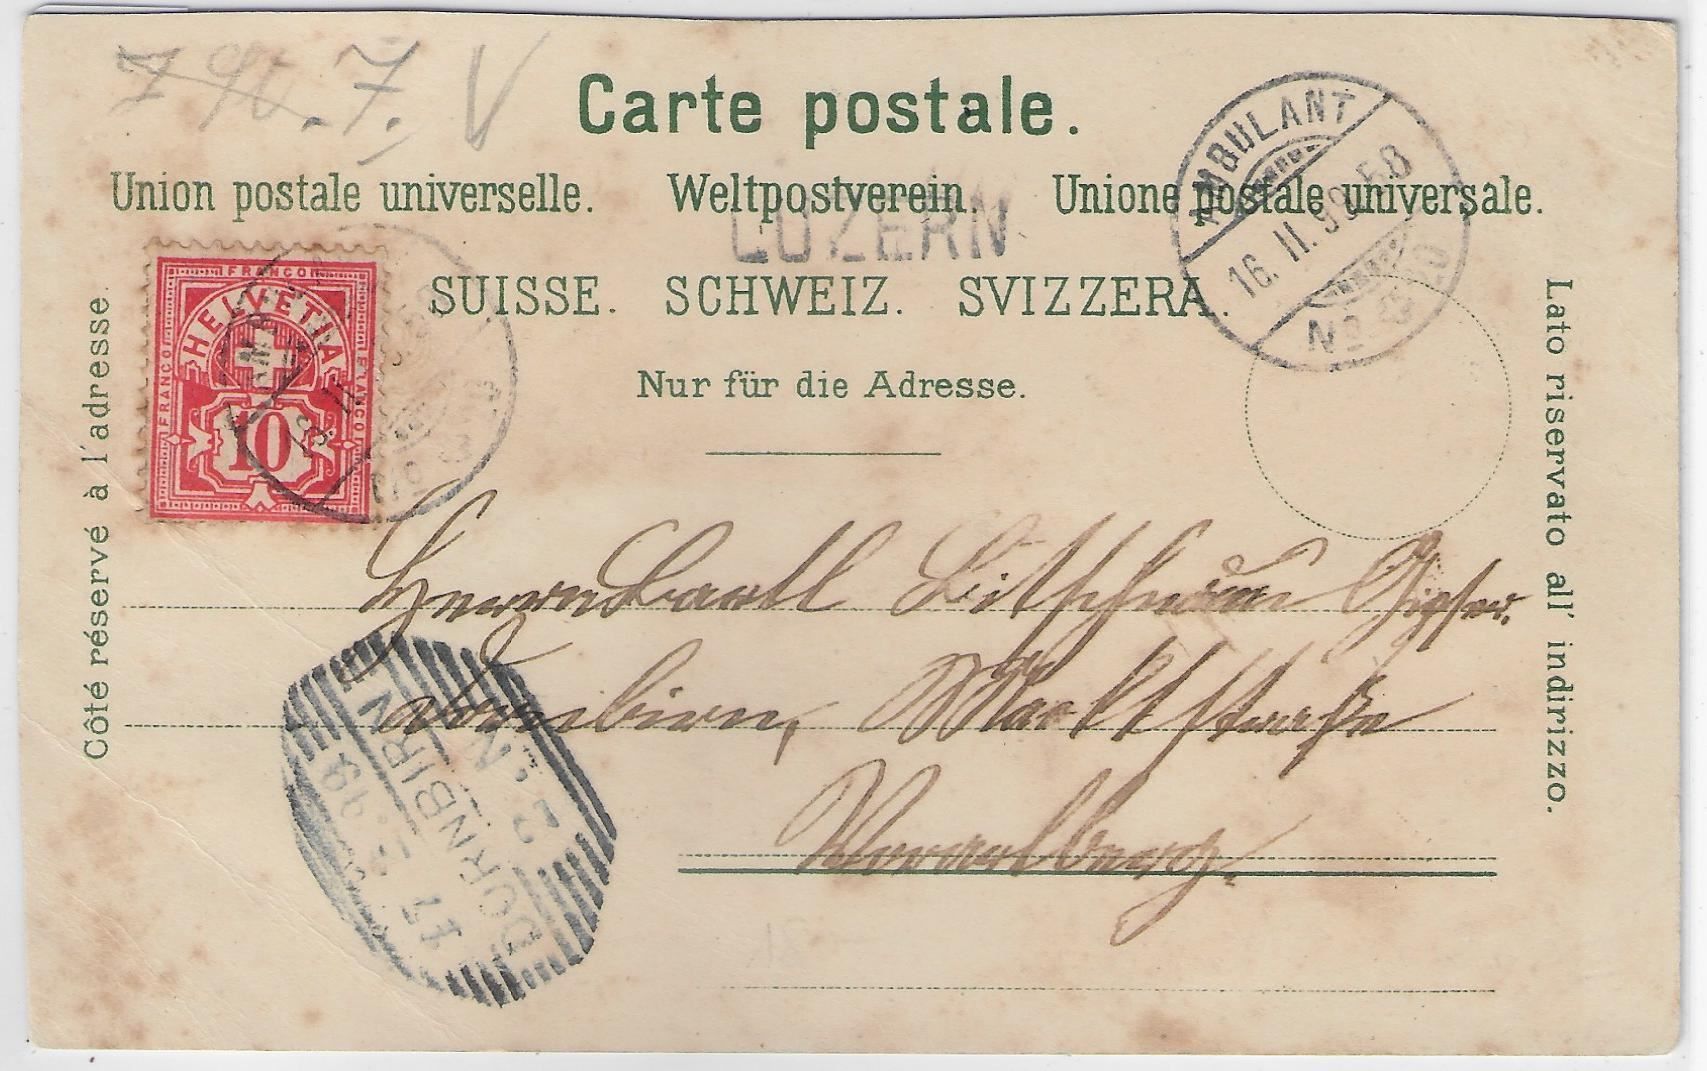 Carte postale.
Union postale universelle. Weltpostverein. Unione postale universale.
LUZERN
AMBULANT
16. II. 99. 58
No
SUISSE. SCHWEIZ. SVIZZERA.
Nur für die Adresse.
FRANCO
HELVETIA
FRANCO
FRANCO
10
Côté réservé à l'adresse.
Lato riservato all' indirizzo.
Herrn Bartl Bitschnau Gipser.
Dornbirn, Marktstraße
Vorarlberg.
DORNBIRN
17. 2. 99
DORNBIRN